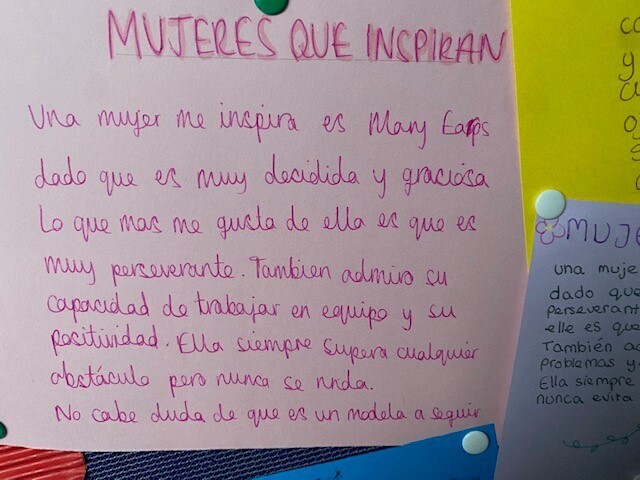 MUJERES QUE INSPIRAN
Una mujer me inspira es Mary Earps
dado que es muy decidida y graciosa
Lo que mas me gusta de ella es que es
muy perseverante. Tambien admiro su
capacidad de trabajar en equipo y su
positividad. Ella siempre supera cualquier
obstáculo pero nunca se rinda.
No cabe duda de que es un modela a seguir
MUJE
una muje
dado que
perseverant
elle es que
También ad
problemas y
Ella siempre
nunca evita
co
y